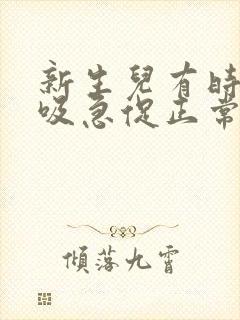 新生兒有時
吸急促正常
傾落九霄